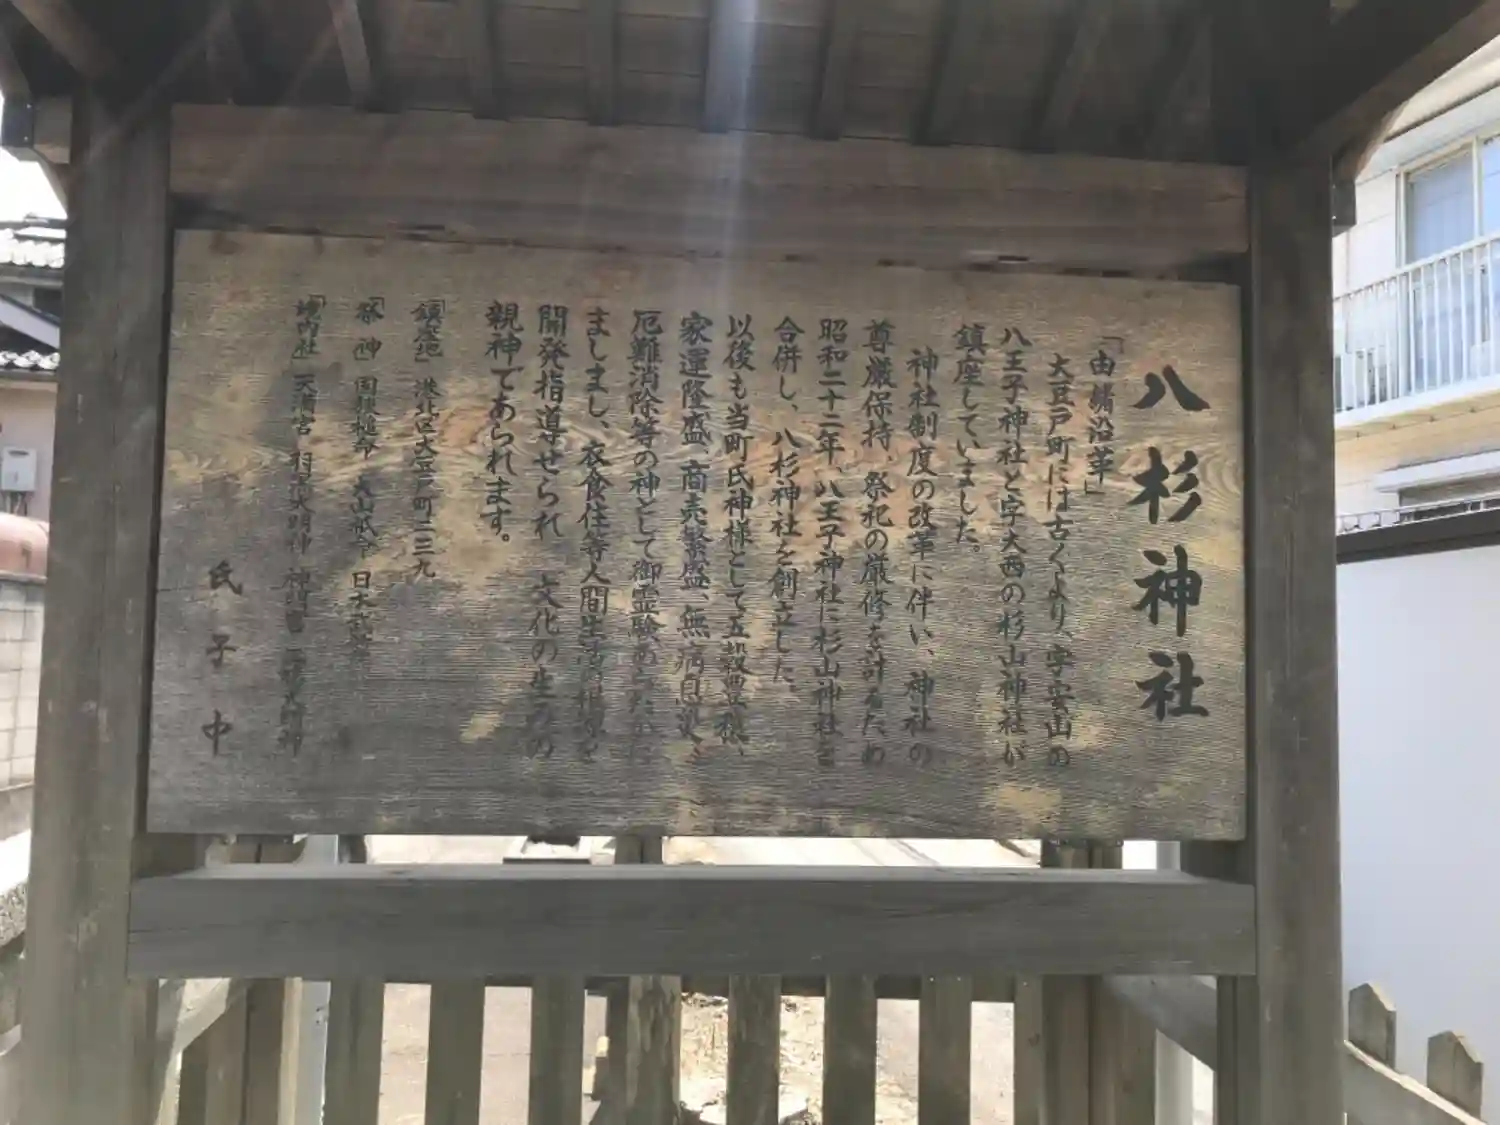 八杉神社
「由緒沿革」
大豆戸町には古くより、字安山の
八王子神社と字大西の杉山神社が
鎮座していました。
神社制度の改革に伴い、神社の
尊厳保持、祭祀の厳修を計るため
昭和二十二年、八王子神社に杉山神社を
合併し、八杉神社を創立した。
以後も当町氏神様として五穀豊穣、
家運隆盛、商売繁盛、無病息災と
厄難消除等の神として御霊験あらたかに
ましまし、衣食住等人間生活の根源を
開発指導せられ 文化の生みの
親神であられます。
「鎮座地」 港北区大豆戸町二三九
「祭神」 国狭槌命 大山祇命 日本武尊
「境内社」 天満宮
氏子中